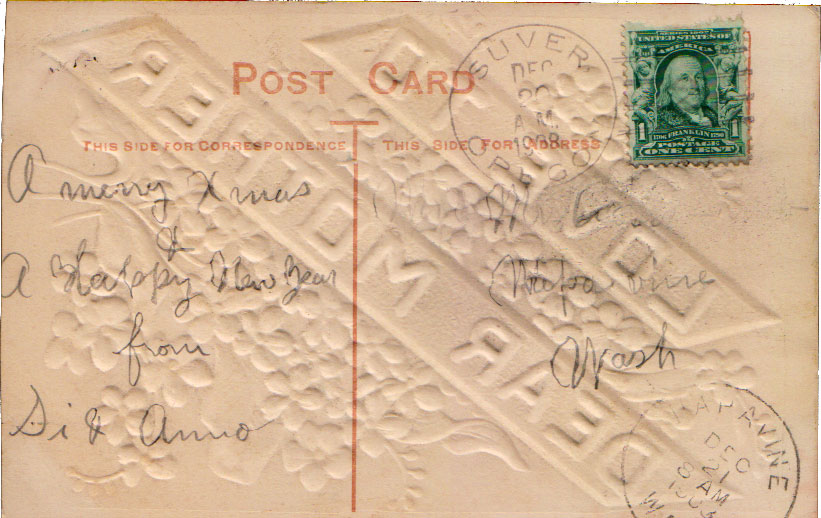 POST CARD
THIS SIDE FOR CORRESPONDENCE
THIS SIDE FOR ADDRESS
SUVER
DEC
20
A.M.
1908
OREGON
SERIES 1902
UNITED STATES OF
AMERICA
1706 FRANKLIN 1790
1 1
POSTAGE
ONE CENT
A merry Xmas
&
A Happy New Year
from
Si & Anna
Napavine
Wash
NAPAVINE
DEC
21
8 AM
TO MOTHER
DEAR